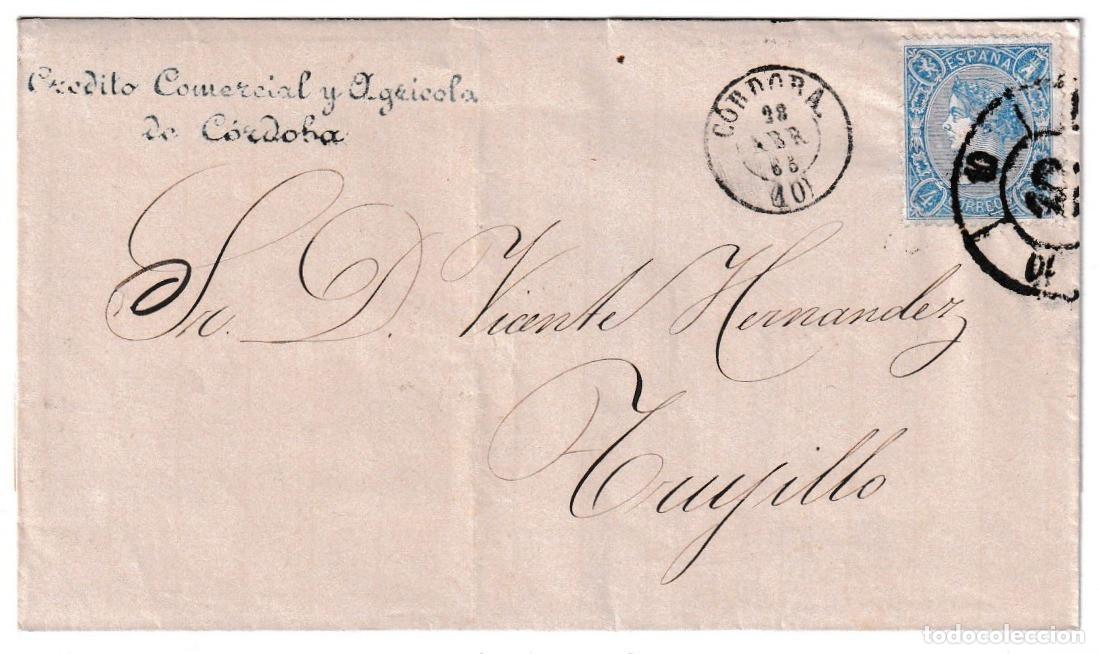 Credito Comercial y Agricola
de Córdoba
CORDOBA
28
ABR
65
(10)
ESPAÑA
4 4
CORREOS
10
10
Sr. D. Vicente Hernandez
Trujillo
todocoleccion